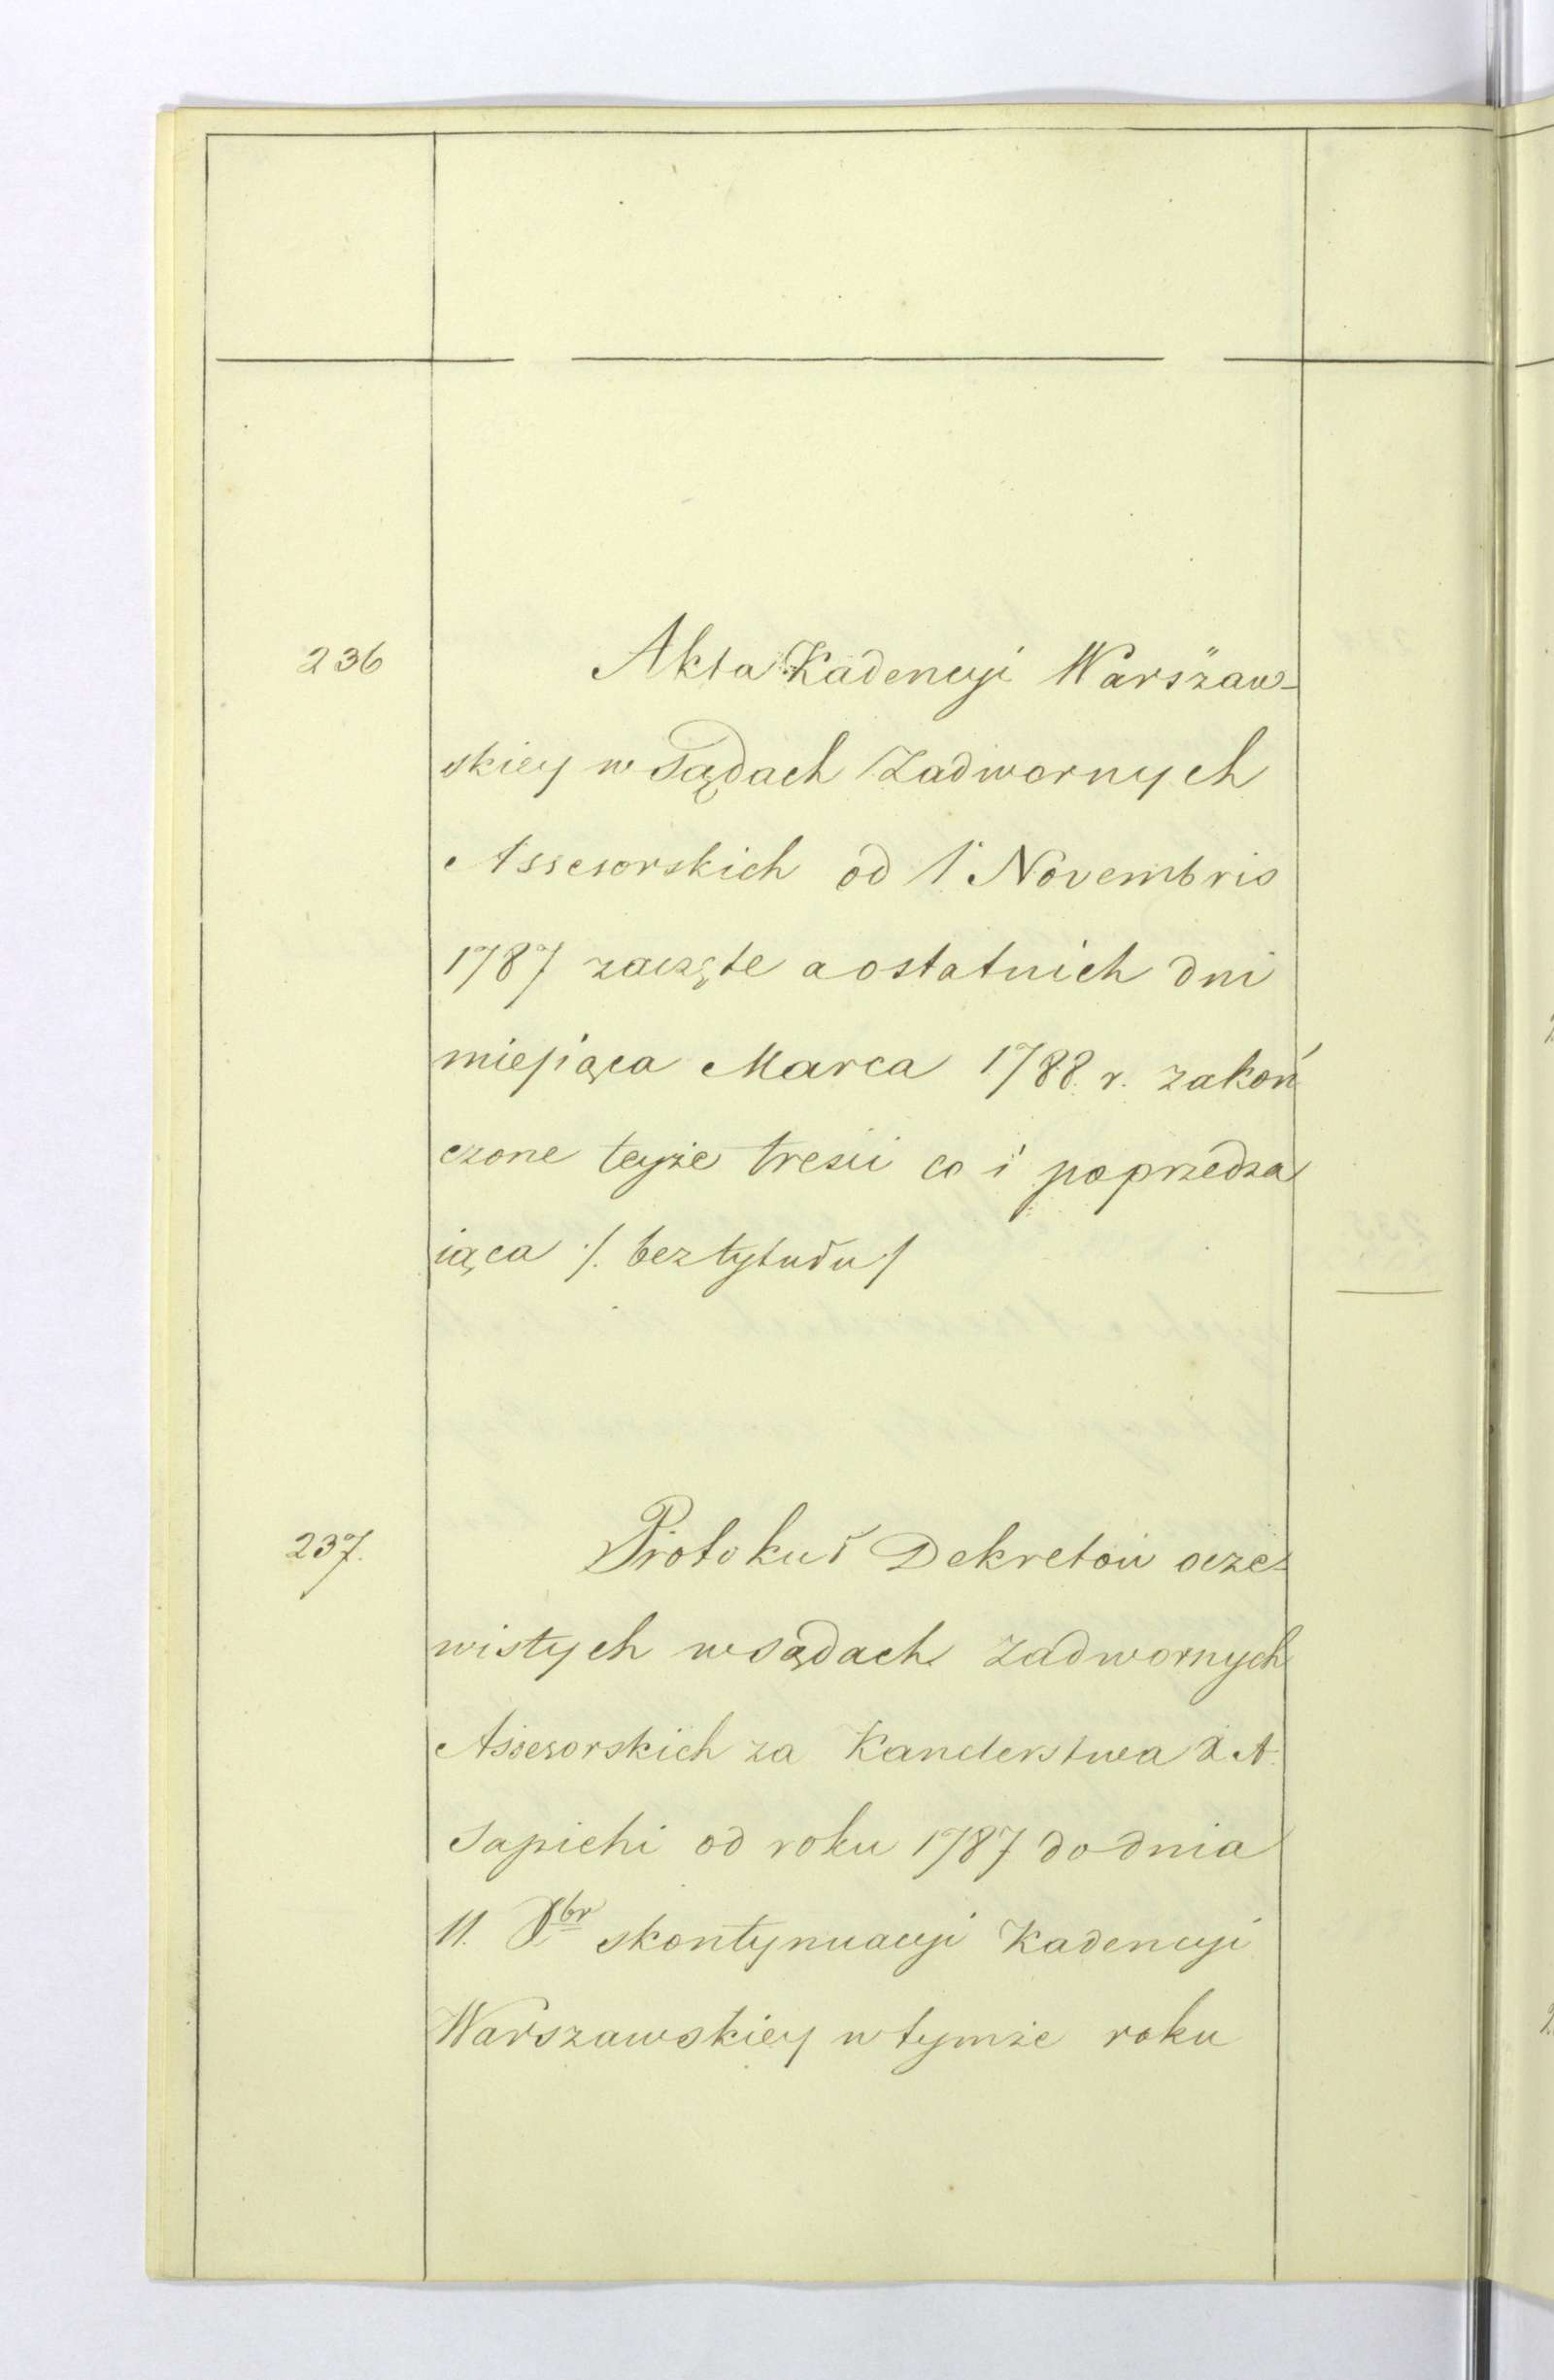 236 Akta Kadencyi Warszaw-
skiey w Sądach Zadwornych
Assesorskich od 1 Novembris
1787 zaczęte a ostatnich dni
miesiąca Marca 1788. r. zakoń
czone teyże treści co i poprzedza
iąca /. bez tytułu /
237. Protokuł Dekretów ocze-
wistych w sądach Zadwornych
Assesorskich za Kanclerstwa X. A.
Sapiehi od roku 1787 do dnia
11. Xbr skontynuacyi Kadencyi
Warszawskiey w tymże roku